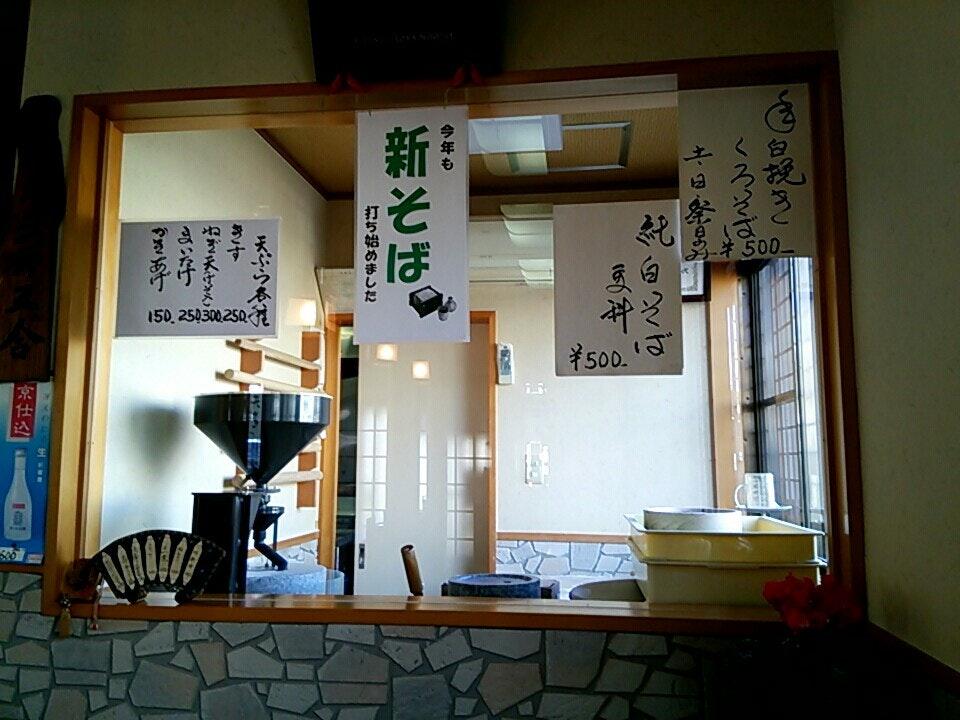 手臼挽き
くろそば
¥500-
土・日・祭日のみ
純白そば
更科
¥500-
今年も
新そば
打ち始めました
天ぷら各種
きす 250.
ねぎ天(げそ入) 300.
まいたけ 250.
かきあげ 150.
京仕込
生